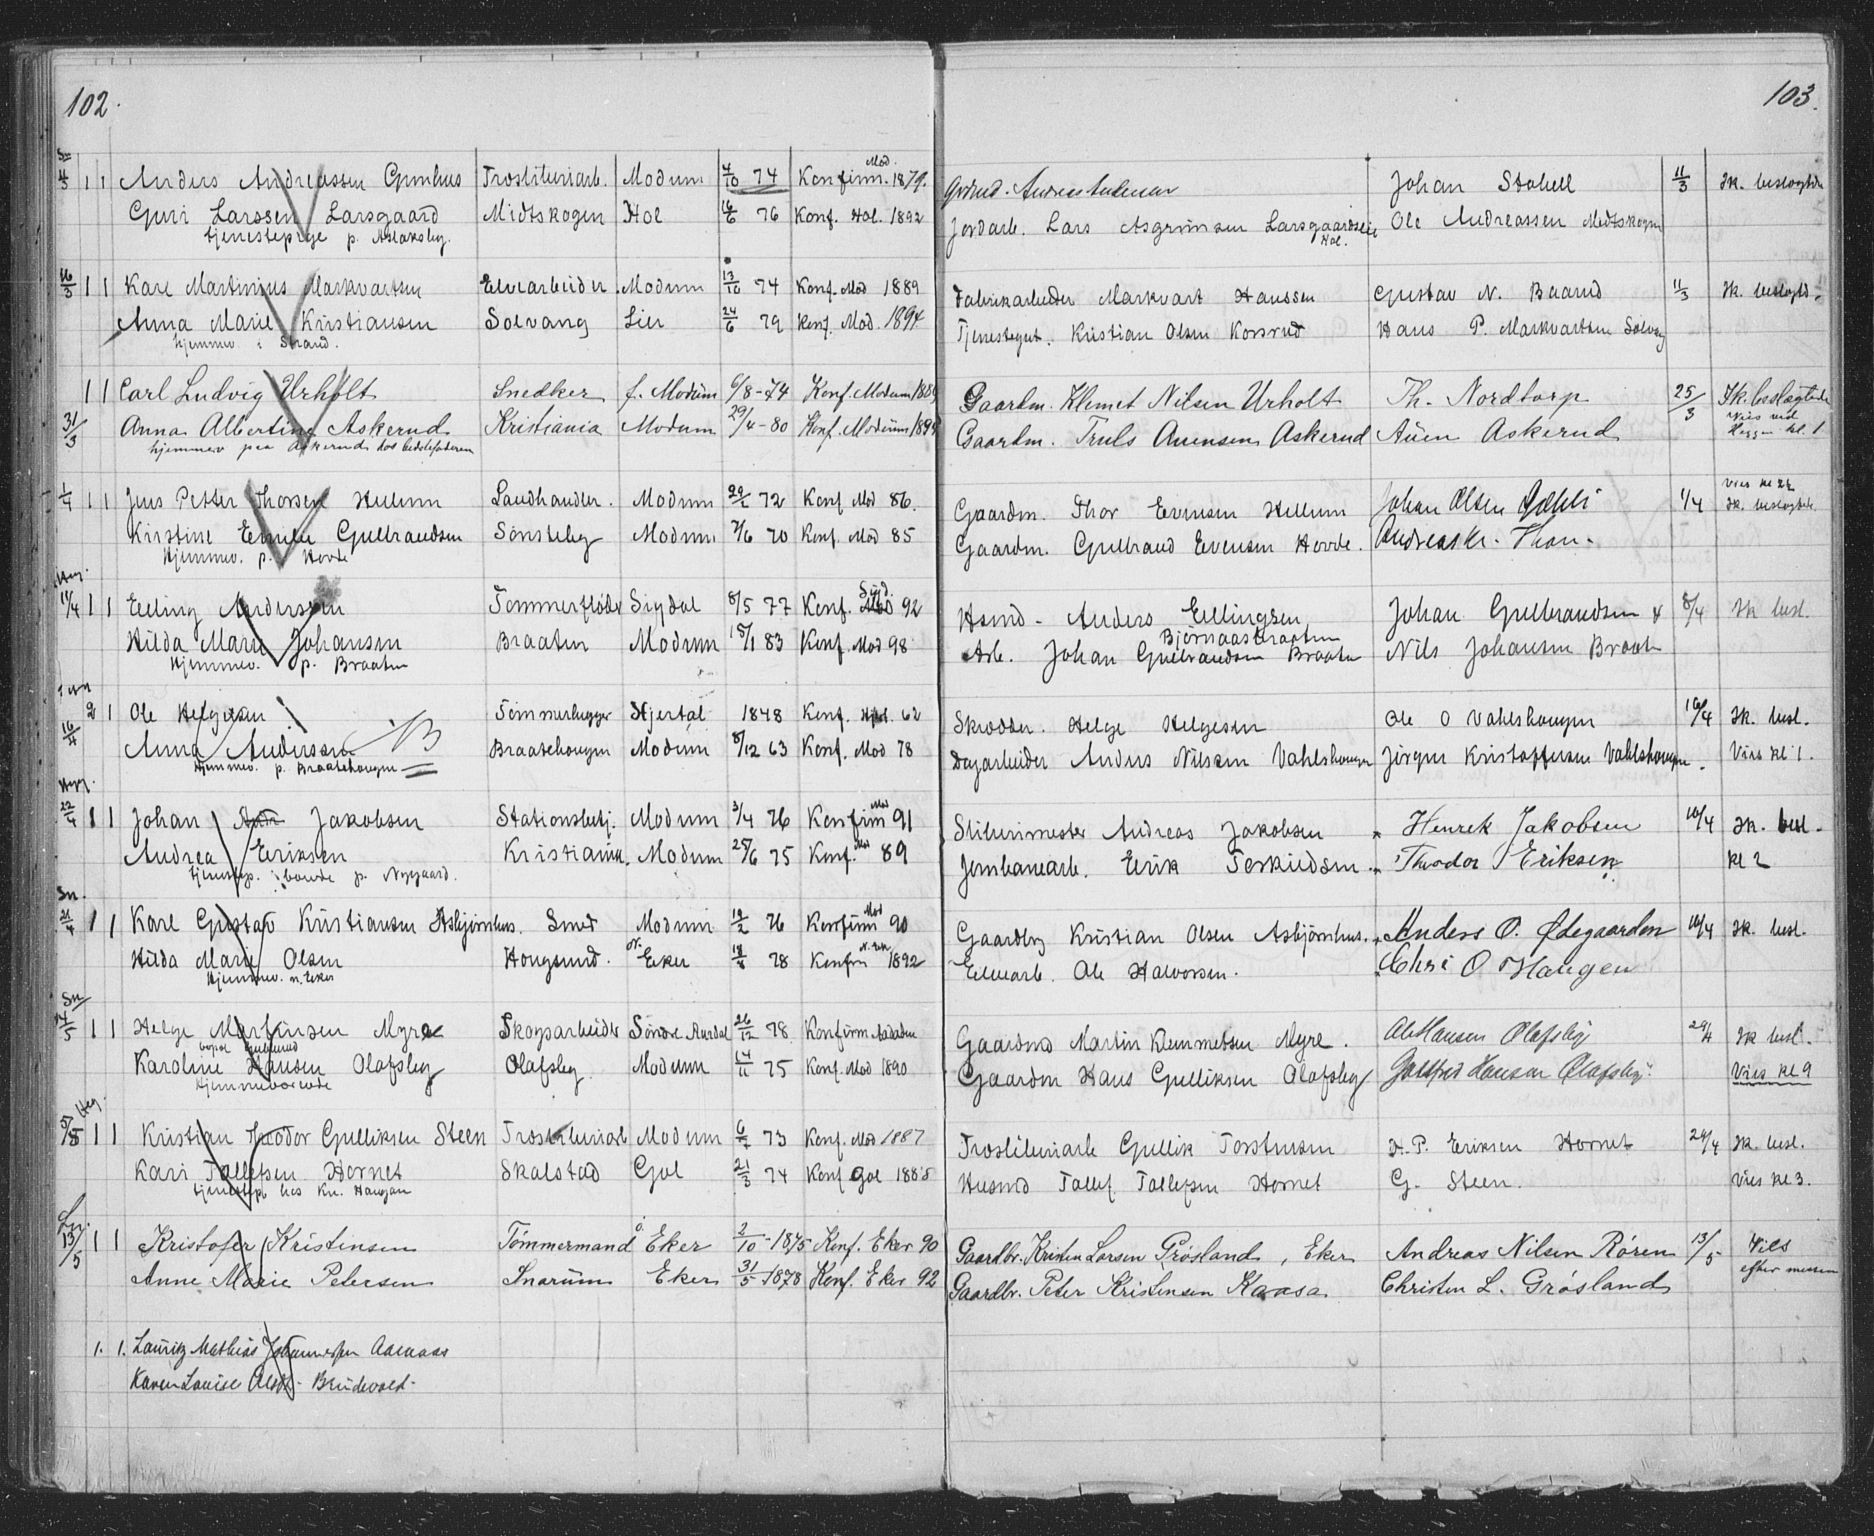 102.
103.
Sn 4/3 1 1 Anders Andreassen Gunhus Træsliberiarb. Modum 4/10 74 Konfirm. Mod. 1879. Johan Stabell 11/3 Ik. beslægtede
Guri Larssen Larsgaard Midtskogen Hol 16/6 76 Konf. Hol. 1892 Jordarb. Lars Asgrimsen Larsgaardseie Ole Andreassen Midtskogen
tjenestepige p. Aslaksby. Hol.
16/3 1 1 Karl Martinius Markvartsen Elvearbeider Modum 13/10 74 Konf. Mod 1889 Fabrikarbeider Markvart Hanssen Gustav N. Baand 11/3 Ik. beslægtd.
Anna Marie Kristiansen Solvang Lier 24/6 79 Konf. Mod. 1894 Tjenestegut. Kristian Olsen Korsrud Hans P. Markvartsen Solvang
hjemmev. i Strand.
1 1 Carl Ludvig Urholt Snedker f. Modum 6/8-74 Konf. Modum 1889 Gaardm. Klemet Nilsen Urholt Th. Nordtorp 25/3 Ik. beslægtede
31/3 Anna Albertine Askerud Kristiania Modum 29/4-80 Konf. Modum 1894 Gaardm. Truls Auensen Askerud Auen Askerud Vies ved Heggen kl. 1
hjemmev paa Askerud hos bedstefaderen
1/4 1 1 Jens Petter Thorsen Hellum Landhandler. Modum 29/1 72 Konf Mod 86. Gaardm. Thor Evensen Hellum Johan Olsen Dæhli 1/4 Vies kl 2½ Ik. beslægtede
Kristine Emilie Gulbrandsen Sønsteby Modum 7/6 70 Konf. Mod 85 Gaardm. Gulbrand Evensen Hovde. Andreas Kr. Thon.
Hjemmev. p. Hovde
Heg. 11/4 1 1 Elling Anderssen Tømmerfløder Sigdal 8/5 77 Konf. Sigd. 92 Husmd - Anders Ellingsen Johan Gulbrandsen 8/4 Ik besl.
Bjørnaasbraaten
Hilda Marie Johansen Braaten Modum 15/1 83 Konf. Mod 98 Arb. Johan Gulbrandsen Braaten Nils Johansen Braaten
Hjemmev. p. Braaten
16/4 2 1 Ole Helgesen Tømmerhugger Hjertal 1848 Konf. Hjt. 62 Skrædder. Helge Helgesen Ole O Vahlshaugen 16/4 Ik. besl.
Anna Anderssen NB Braatehaugen Modum 8/12 63 Konf. Mod 78 Dagarbeider Anders Nilsen Vahlshaugen Jørgen Kristoffersen Vahlshaugen. Vies kl 1.
Hjemmev. p. Braatehaugen
Heg. 22/4 1 1 Johan Jakobsen Stationsbetj. Modum 3/4 76 Konfirm Mod 91 Sliberimester Andreas Jakobsen Henrik Jakobsen 10/4 Ik. besl.
Andrea Eriksen Kristiania. Modum 25/6 75 Konf. Mod 89 Jernbanearb. Erik Torkildsen Theodor Eriksen kl 2
tjenestep. boende p. Nygaard.
Sn. 21/4 1 1 Karl Gustav Kristiansen Asbjørnhus. Smed Modum 19/2 76 Konfirm Mod 90 Gaardbr Kristian Olsen Asbjørnhus. Anders O. Ødegaarden 10/4 Ik. besl.
Hilda Marie Olsen Hougsund. N. Eker 78 Konfir N. Eker 1892 Elvearb. Ole Halvorsen. Chri O Haugen
Hjemmev. N. Eker
Sn/ 14/5 1 1 Helge Martinsen Myre Skogsarbeider Søndre Aurdal 26/12 78 Konfirm Aadalen Gaardmd Martin Klemmetsen Myre. Ole Hansen Olafsby 29/4 Ik besl.
Karoline Hansen Olafsby Olafsby Modum 14/11 75 Konf. Mod 1890 Gaardm Hans Gulliksen Olafsby Gottfred Hansen Olafsby Vies kl 9
Hjemmeboende
Heg. 5/5 1 1 Kristian Theodor Gulliksen Steen Træsliberiarb Modum 6/2 73 Konf. Mod 1887 Træsliberiarb Gullik Torstensen H. P. Eriksen Hornet 24/4 Ik. besl.
Kari Tollefsen Hornet Skalstad Gol 21/3 74 Konf Gol 1888 Husmd Tollef Tollefsen Hornet G. Steen. Vies kl 3.
tjenestep. hos Kn. Haugan
13/5 1 1 Kristofer Kristensen Tømmermand ö. Eker 2/10-1875 Konf. Eker 90 Gaardbr. Kristen Larsen Grøsland, Eker Andreas Nilsen Røren 13/5 Vies efter messen
Anne Marie Petersen Snarum Eker 31/5-1878 Konf. Eker 92 Gaardbr. Peter Kristensen Kaasa. Christen L. Grøsland
1. 1. Lauritz Mathias Johannessen Aamaas
Karen Louise Olsdt. Bridevold